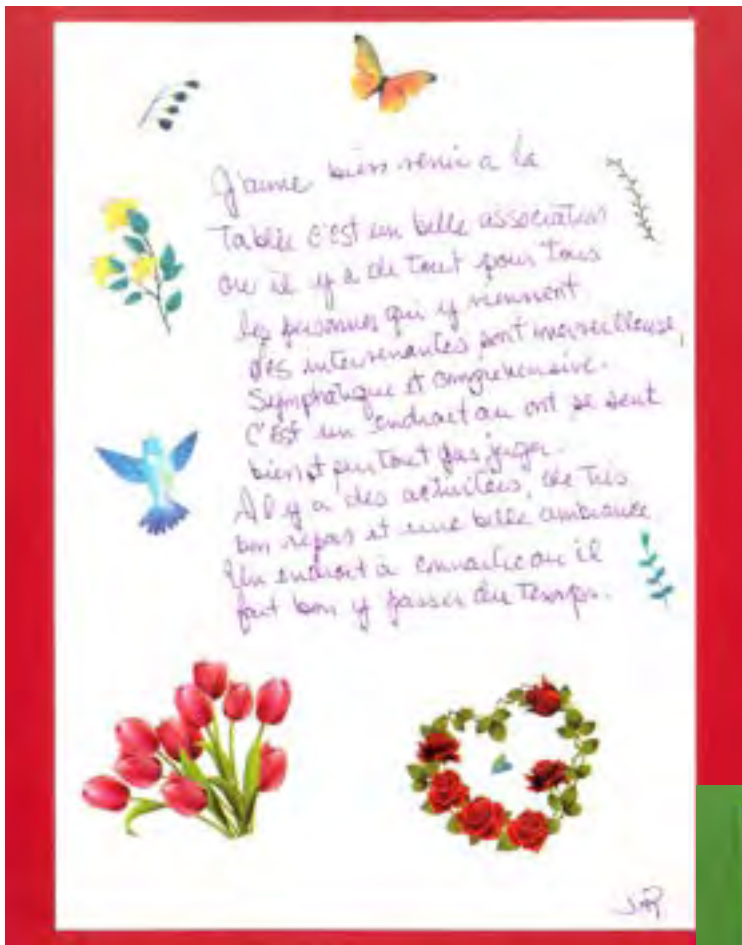 J'aime bien venir a la
Tablée c'est un belle association
ou il y a de tout pour tous
les personnes qui y viennent
des intervenantes sont merveilleuse,
Symphatique et comprehensive.
C'est un endroit ou ont se sent
bien et pas juger.
Il y a des activitées, de très
bon repas et une belle ambiance
Un endroit à connaitre ou il
fait bon y passer du temps.